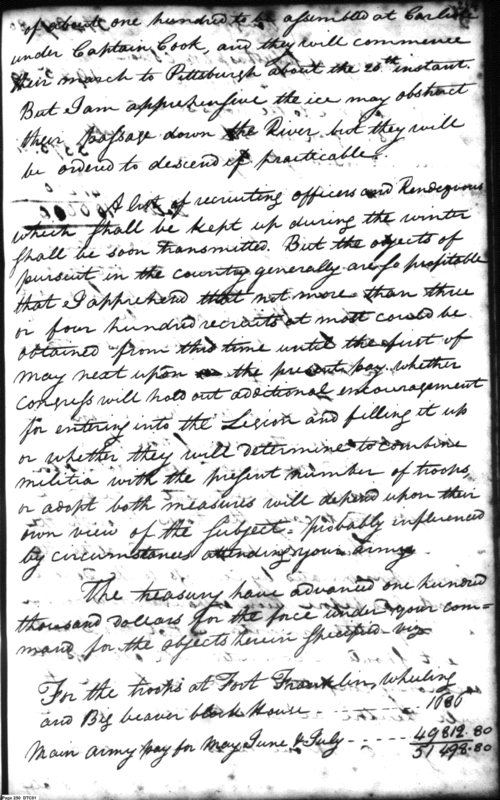 of about one hundred to be assembled at Carlisle
under Captain Cook, and they will commence
their march to Pittsburgh about the 20th instant.
But I am apprehensive the ice may obstruct
their passage down the River but they will
be ordered to descend if practicable.
A list of recruiting officers and Rendezvous
which shall be kept up during the winter
shall be soon transmitted. But the objects of
pursuit in the country generally are so profitable
that I apprehend that not more than three
or four hundred recruits at most could be
obtained from this time until the first of
May next upon the present pay. whether
Congress will hold out additional encouragement
for entering into the Legion and filling it up
or whether they will determine to combine
militia with the present number of troops
or adopt both measures will depend upon their
own view of the subject - probably influenced
by circumstances attending your army.
The treasury have advanced one hundred
thousand dollars for the force under your com=
mand for the objects herein specified viz
For the troops at Fort Franklin, Wheeling
and Big beaver block House - - - - 1686
Main army pay for May June & July - - - - 49812.80
51498.80
Page 250 DTC01